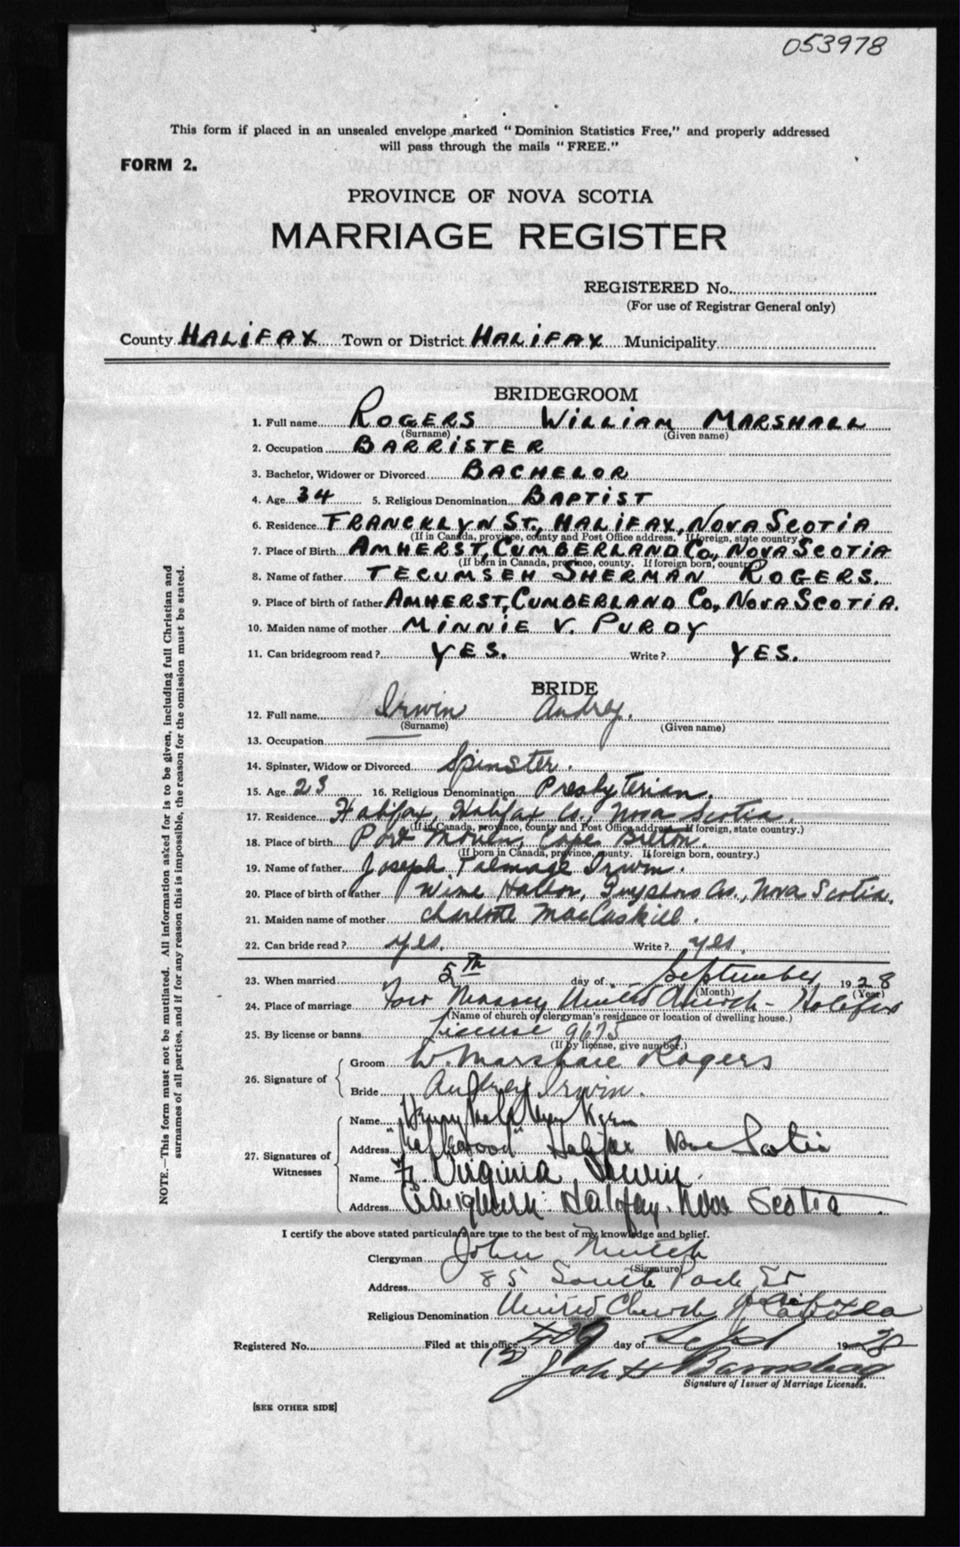 053978
This form if placed in an unsealed envelope marked "Dominion Statistics Free," and properly addressed
will pass through the mails "FREE."
FORM 2.
PROVINCE OF NOVA SCOTIA
MARRIAGE REGISTER
REGISTERED No.
(For use of Registrar General only)
County HALIFAX Town or District HALIFAX Municipality
BRIDEGROOM
1. Full name ROGERS WILLIAM MARSHALL
(Surname) (Given name)
2. Occupation BARRISTER
3. Bachelor, Widower or Divorced BACHELOR
4. Age 34 5. Religious Denomination BAPTIST
6. Residence FRANCKLYN ST., HALIFAX, NOVA SCOTIA
(If in Canada, province, county and Post Office address. If foreign, state country)
7. Place of Birth AMHERST, CUMBERLAND CO., NOVA SCOTIA
(If born in Canada, province, county. If foreign born, country)
8. Name of father TECUMSEH SHERMAN ROGERS.
9. Place of birth of father AMHERST, CUMBERLAND CO., NOVA SCOTIA.
10. Maiden name of mother MINNIE V. PURDY
11. Can bridegroom read? YES. Write? YES.
BRIDE
12. Full name Irwin Audrey.
(Surname) (Given name)
13. Occupation
14. Spinster, Widow or Divorced Spinster.
15. Age 23 16. Religious Denomination Presbyterian.
17. Residence Halifax, Halifax Co., Nova Scotia.
(If in Canada, province, county and Post Office address. If foreign, state country.)
18. Place of birth Port Morien, Cape Breton.
(If born in Canada, province, county. If foreign born, country.)
19. Name of father Joseph Talmage Irwin.
20. Place of birth of father Wine Harbor, Guysboro Co., Nova Scotia.
21. Maiden name of mother Charlotte MacCaskill.
22. Can bride read? yes. Write? yes.
23. When married 5th day of September 1928
(Month) (Year)
24. Place of marriage Fort Massey United Church - Halifax
(Name of church or clergyman's residence or location of dwelling house.)
25. By license or banns License 9675
(If by license, give number.)
26. Signature of
Groom W. Marshall Rogers
Bride Audrey Irwin.
27. Signatures of Witnesses
Name Henry
Address Halifax Nova Scotia
Name Virginia Irwin
Address Halifax. Nova Scotia
I certify the above stated particulars are true to the best of my knowledge and belief.
Clergyman John Mutch
(Signature)
Address 85 South Park St
Halifax
Religious Denomination United Church of Canada
Registered No. Filed at this office day of Sept 1928
12 John H
Signature of Issuer of Marriage Licenses.
[SEE OTHER SIDE]
NOTE.—This form must not be mutilated. All information asked for is to be given, including full Christian and
surnames of all parties, and if for any reason this is impossible, the reason for the omission must be stated.